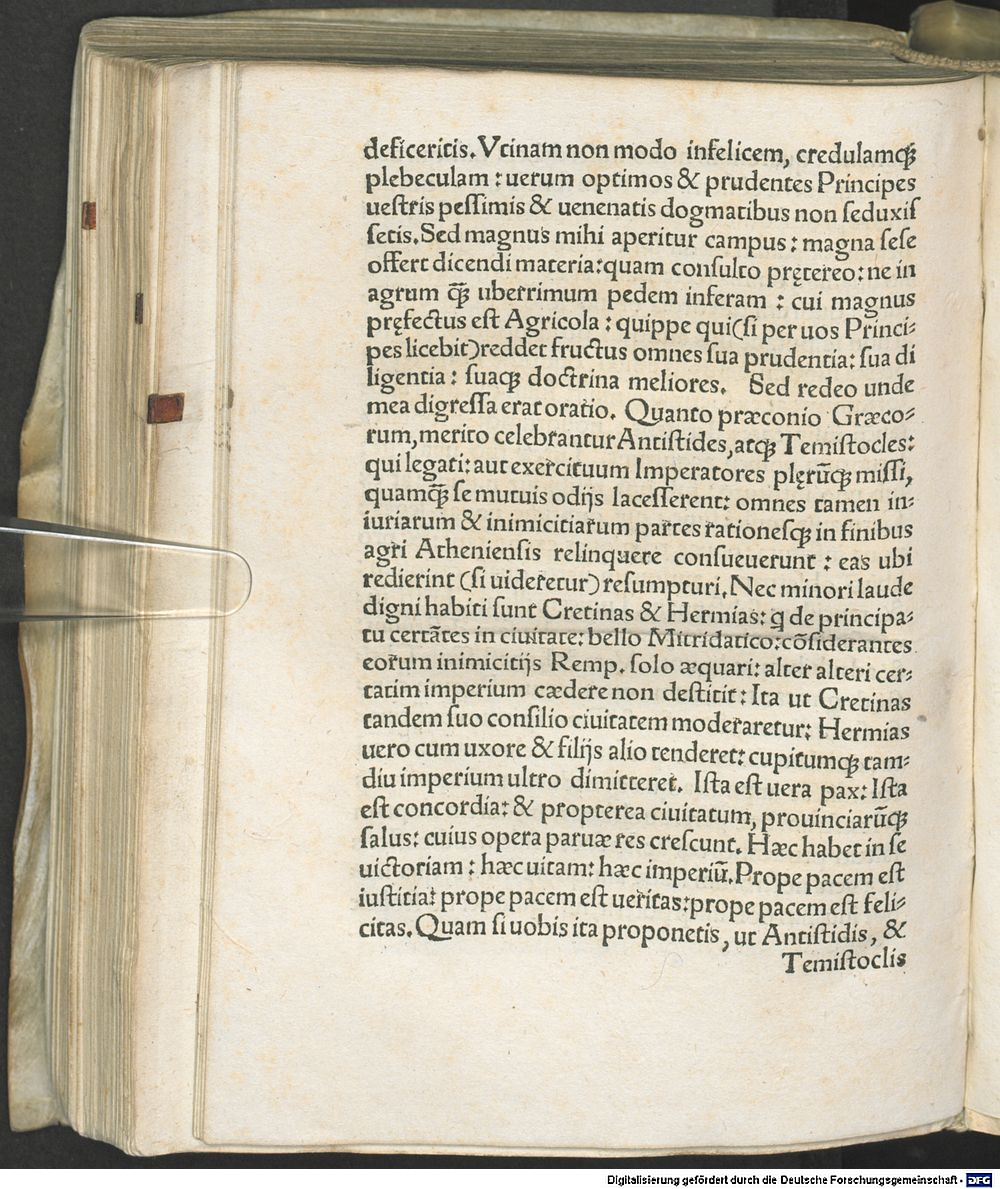 deficeritis. Vtinam non modo infelicem, credulamqꝫ
plebeculam : uerum optimos & prudentes Principes
ueſtris peſſimis & uenenatis dogmatibus non ſeduxiſ
ſetis. Sed magnus mihi aperitur campus : magna ſeſe
offert dicendi materia: quam conſulto prętereo: ne in
agrum qꝫ̃ uberrimum pedem inferam : cui magnus
pręfectus eſt Agricola : quippe qui (ſi per uos Princi⸗
pes licebit) reddet fructus omnes ſua prudentia: ſua di
ligentia : ſuaqꝫ doctrina meliores. Sed redeo unde
mea digreſſa erat oratio. Quanto præconio Græco⸗
rum, merito celebrantur Antiſtides, atqꝫ Temiſtocles:
qui legati: aut exercituum Imperatores plęrūqꝫ miſſi,
quamqꝫ̃ ſe mutuis odijs laceſſerent: omnes tamen in⸗
iuriarum & inimicitiarum partes rationeſqꝫ in finibus
agri Athenienſis relinquere conſueuerunt : eas ubi
redierint (ſi uideretur) reſumpturi. Nec minori laude
digni habiti ſunt Cretinas & Hermias: q de principa⸗
tu certātes in ciuitate: bello Mitridatico: cōſiderantes
eorum inimicitijs Remp. ſolo æquari: alter alteri cer⸗
tatim imperium cædere non deſtitit : Ita ut Cretinas
tandem ſuo conſilio ciuitatem moderaretur: Hermias
uero cum uxore & filijs alio tenderet: cupitumqꝫ tam⸗
diu imperium ultro dimitteret. Iſta eſt uera pax: Iſta
eſt concordia: & propterea ciuitatum, prouinciarūqꝫ
ſalus: cuius opera paruæ res creſcunt. Hæc habet in ſe
uictoriam : hæc uitam: hæc imperiū. Prope pacem eſt
iuſtitia: prope pacem eſt ueritas: prope pacem eſt feli⸗
citas. Quam ſi uobis ita proponetis, ut Antiſtidis, &
Temiſtoclis
Digitalisierung gefördert durch die Deutsche Forschungsgemeinschaft - DFG